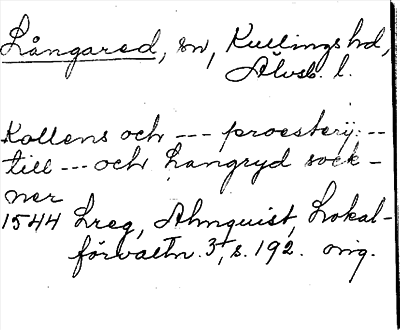 Långared, sn, Kullings hd,
Älvsb. l.
Kollens och --- proesterij: --
till --- och Langryd sock-
ner
1544 Lreg, Almquist, Lokal-
förvaltn. 3, s. 192. orig.